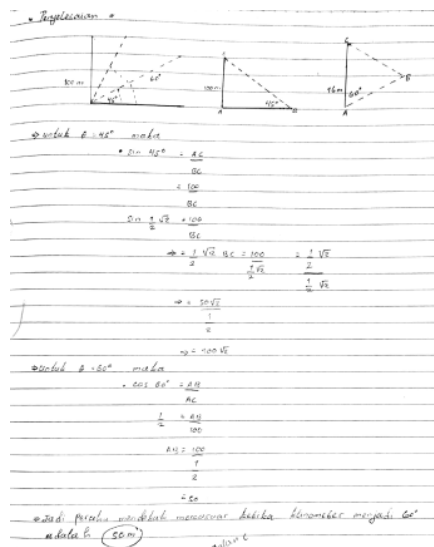 • Penyelesaian •
100 m
60°
45°
C
100 m
A
45°
B
C
46 m
60°
A
B
⇒ untuk θ = 45° maka
• sin 45° = AC
BC
= 100
BC
sin 1/2 √2 = 100
BC
⇒ = 1/2 √2 BC = 100 = 1/2 √2
1/2 √2 1/2 √2
⇒ = 50√2
1
2
⇒ = 100 √2
⇒ untuk θ = 60° maka
• cos 60° = AB
AC
1/2 = AB
100
AB = 100
1
2
= 50
⇒ Jadi perahu mendekati mercusuar ketika klinometer menjadi 60°
adalah 50 m